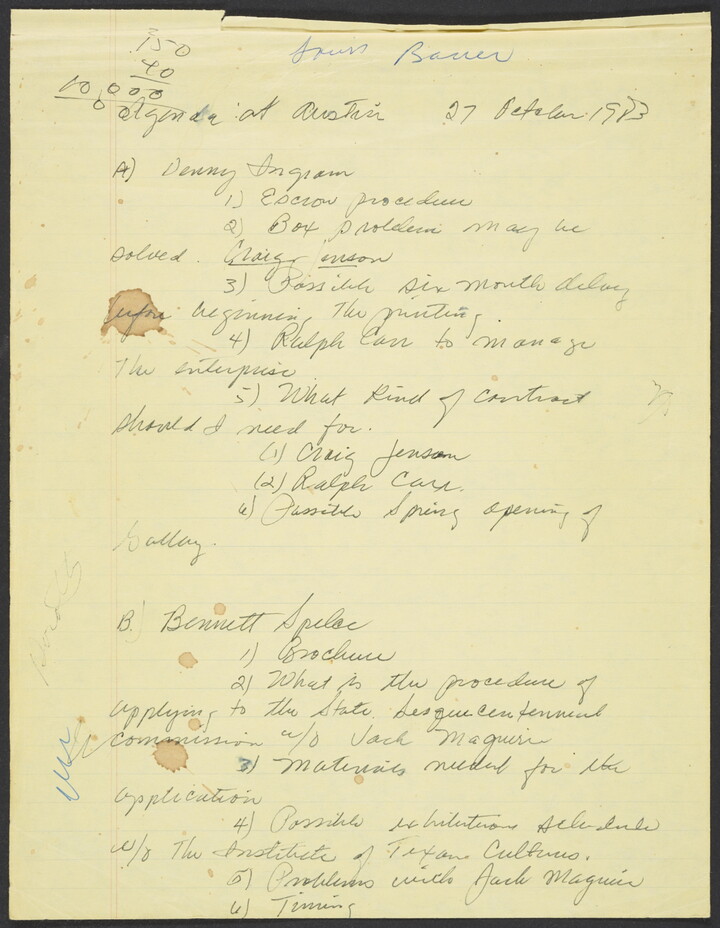 150
40
000
10,000
Agenda at Austin 27 October 1983
A) Denny Ingram
1) Escrow procedure
2) Box problem may be
solved. Craig Jenson
3) Possible six month delay
before beginning the printing.
4) Ralph Carr to manage
the enterprise
5) What kind of contract
should I need for.
(1) Craig Jenson
(2) Ralph Carr.
6) Possible Spring opening of
Gallery.
B.) Bennett Spelce
1) Brochure
2) What is the procedure of
applying to the State Sesquicentennial
commission w/o Jack Maguire
3) Materials needed for the
application
4) Possible exhibitions schedule
w/o The Institute of Texan Cultures.
5) Problems with Jack Maguire
6) Timing